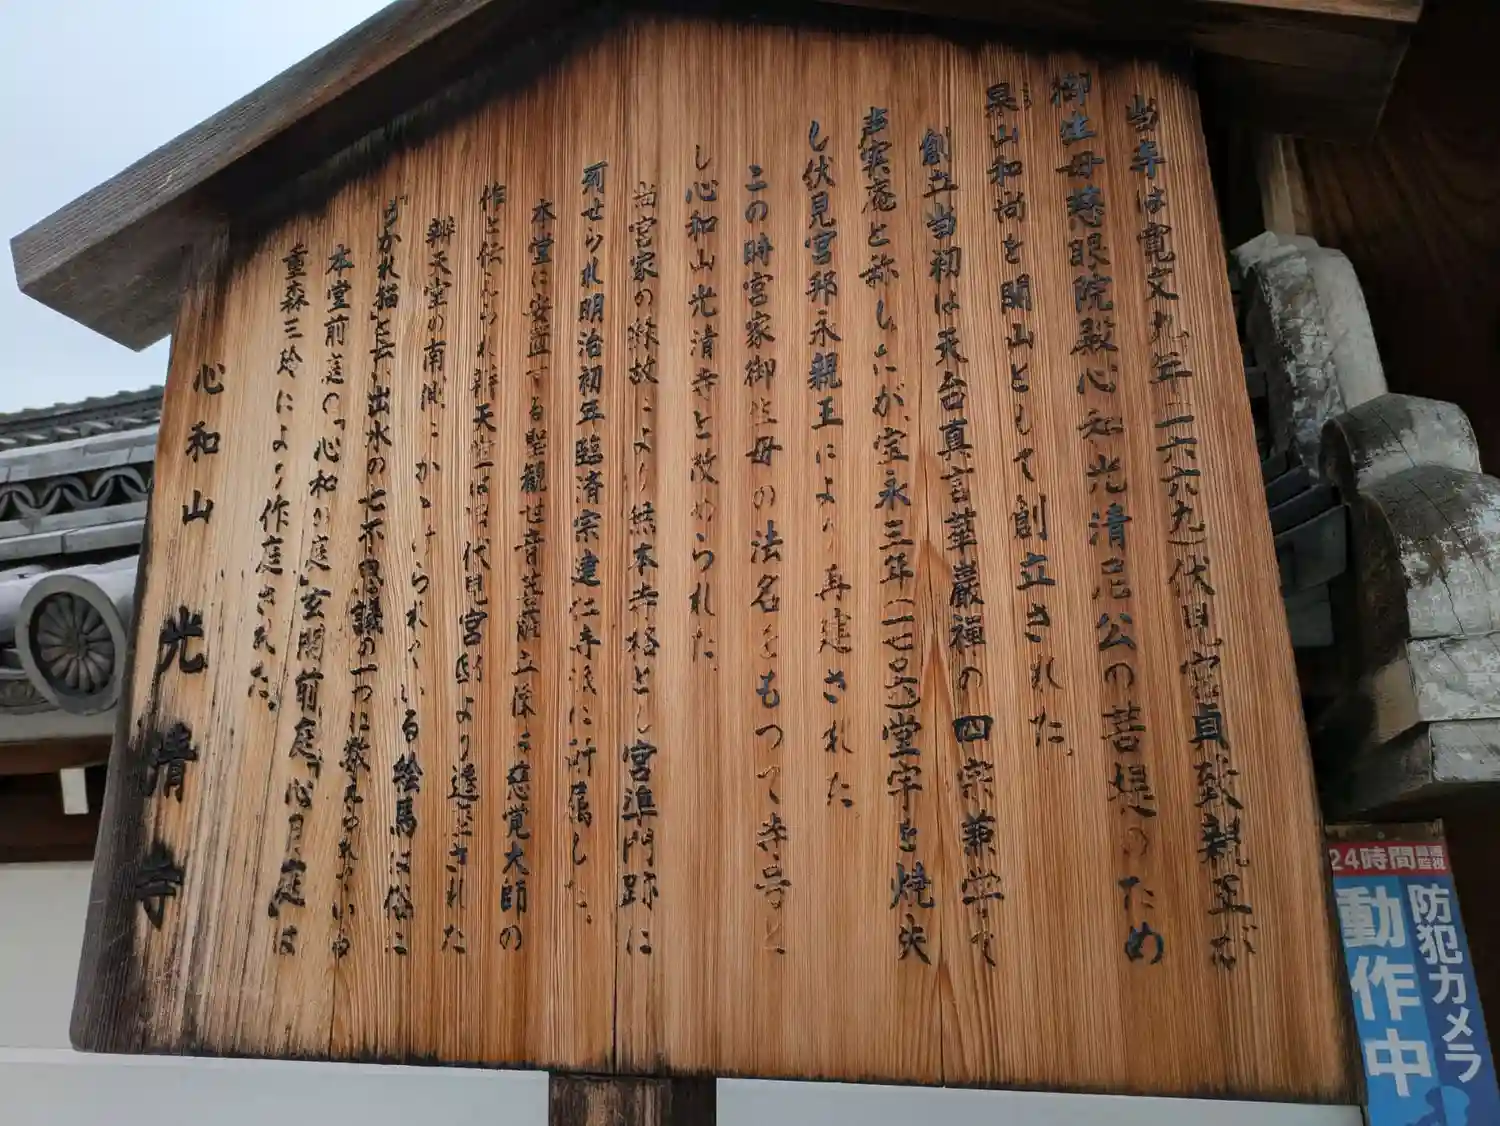 当寺は寛文九年(一六六九)伏見宮貞致親王が
御生母慈眼院殿心和光清尼公の菩提のため
杲山和尚を開山として創立された。
創立当初は天台真言華厳禅の四宗兼学で
声実庵と称したが、宝永三年(一七〇六)堂宇を焼失
し伏見宮邦永親王により再建された
この時宮家御生母の法名をもつて寺号と
し心和山光清寺と改められた。
当宮家の縁故により無本寺格とし宮準門跡に
列せられ明治初年臨済宗建仁寺派に所属した。
本堂に安置する聖観世音菩薩立像は慈覚大師の
作と伝えられ辨天堂は旧伏見宮邸より遷座された
辨天堂の南側にかゝげられている絵馬は俗に
「浮かれ猫」と云い出水の七不思議の一つに数えられている
本堂前庭の「心和の庭」玄関前庭「心月庭」は
重森三玲により作庭された。
心和山 光清寺
24時間
動作中
防犯カメラ